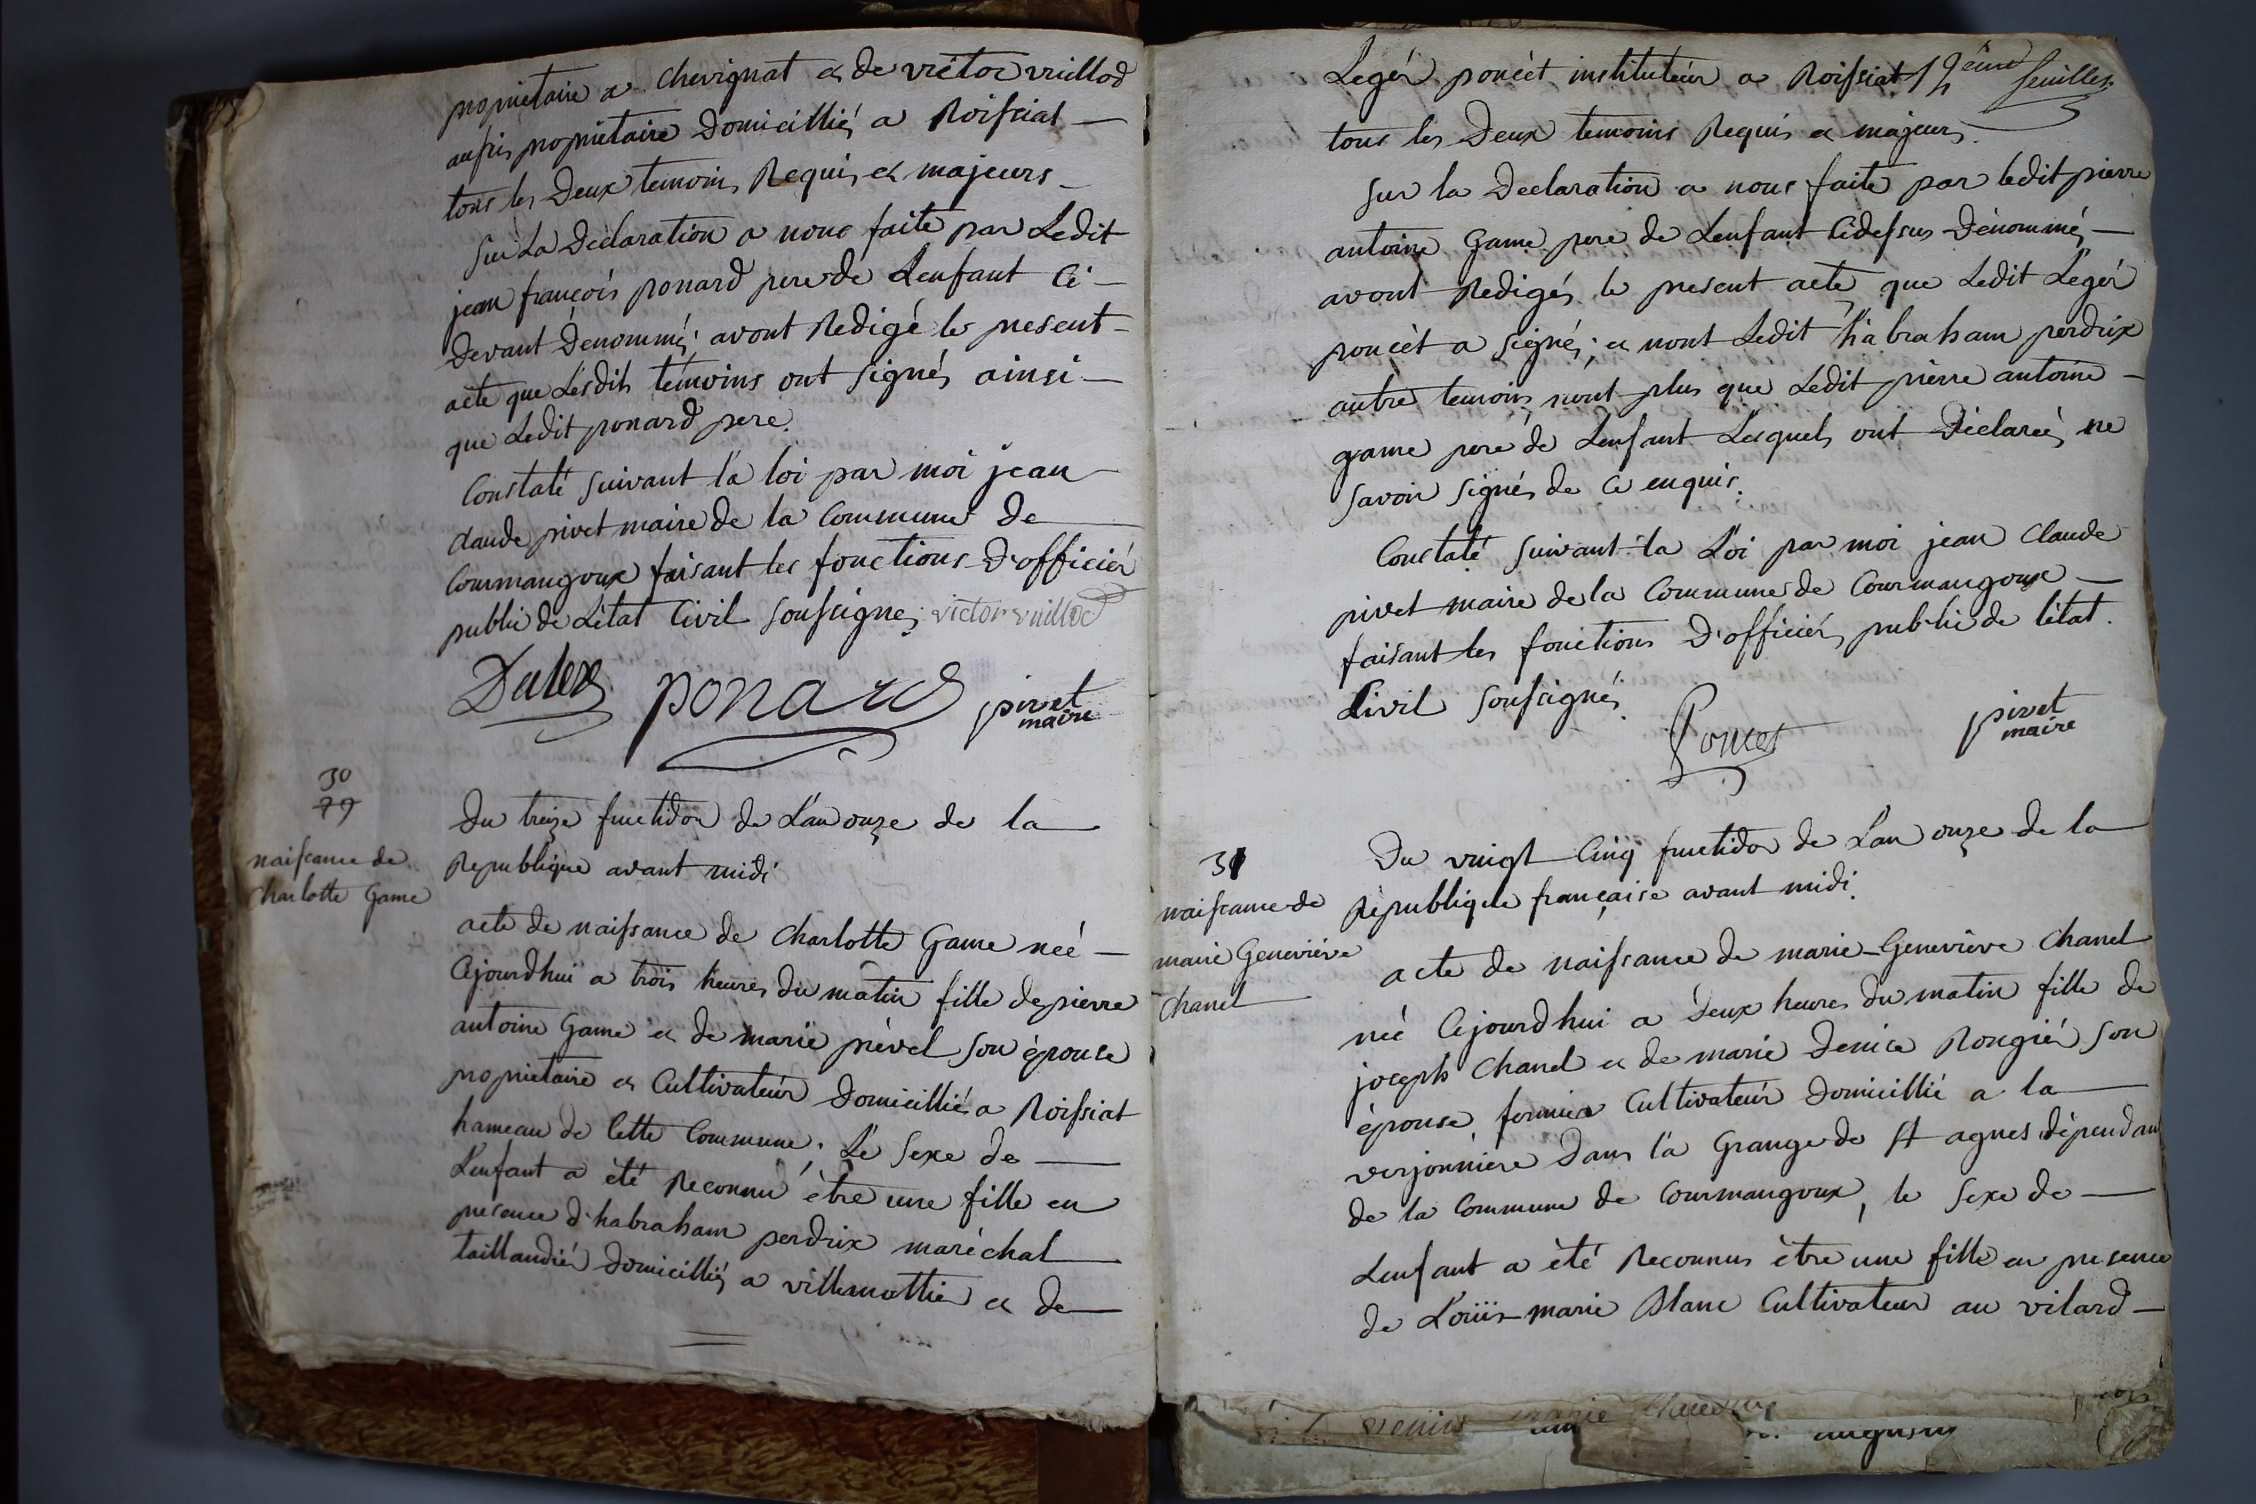 propriétaire a Chevignat et de victor vuillod
aussi propriétaire Domicillié a Roissiat
tous les Deux temoins Requis et majeurs
Sur La Déclaration a nous faite par Ledit
jean françois ponard pere de L'enfant Ci
Devant Dénommé avont Redigé le present
acte que Lesdits témoins ont signés ainsi
que Ledit ponard pere.
Constaté suivant la loi par moi jean
claude pivet maire de la Commune de
Courmangoux faisant les fonctions D'officiér
public de L'état Civil Soussigné victor vuillod
Dulex ponard pivet
maire
30
29
naissance de
Charlotte Game
Du treize fructidor de L'an onze de la
Republique avant midi
acte de naissance de Charlotte Game neé
Cejourdhui a trois heures du matin fille de pierre
antoine Game et de marie prével son épouse
propriétaire et Cultivateúr Domicillié a Roissiat
hameau de Cette Commune. Le Sexe de
L'enfant a été Reconnu être une fille en
presence d'habraham perdrix maréchal
taillandiér Domicillié a villemottier et de
12ème feuillet
Legér poncèt instituteúr a Roissiat
tous les Deux temoins Requis et majeurs.
Sur la Declaration a nous faite par ledit pierre
antoine Game pere de Lenfant Cidessus Dénommé
avont Redigés le present acte que Ledit Légér
poncèt a signés; et nont Ledit habraham perdrix
autre temoin, nont plus que Ledit pierre antoine
game pere de L'enfant Lesquels ont Déclarés ne
Savoir signés de Ce enquis.
Constaté suivant la Loi par moi jean Claude
pivet maire de la Commune de Courmangoux
faisant les fonctions D'officiér public de l'état
Civil Soussigné
Poncet pivet
maire
31
naissance de
marie Geneviéve
Chanel
Du vingt Cinq fructidor de L'an onze de la
République française avant midi.
acte de naissance de marie-Geneviève Chanel
neé Cejourdhui a Deux heures du matin fille de
joseph Chanel et de marie Denise Rongiér son
épouse fermier Cultivateúr Domicillié a la
verjonniere Dans la Grange de St agnes dépendant
de la Commune de Courmangoux, le Sexe de
Lenfant a été Reconnus être une fille en presence
de Loüis marie Blanc Cultivateur au vilard